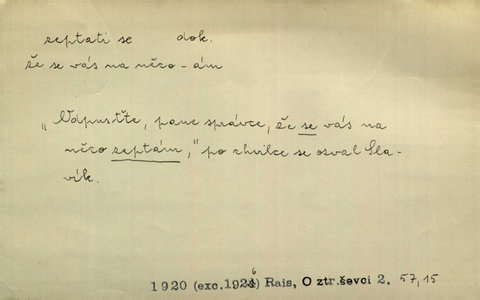 zeptati se dok.
že se vás na něco -ám
„Odpusťte, pane správce, že se vás na
něco zeptám,“ po chvilce se ozval Sla-
vík.
1920 (exc.1926 Rais, O ztr.ševci 2. 57,15